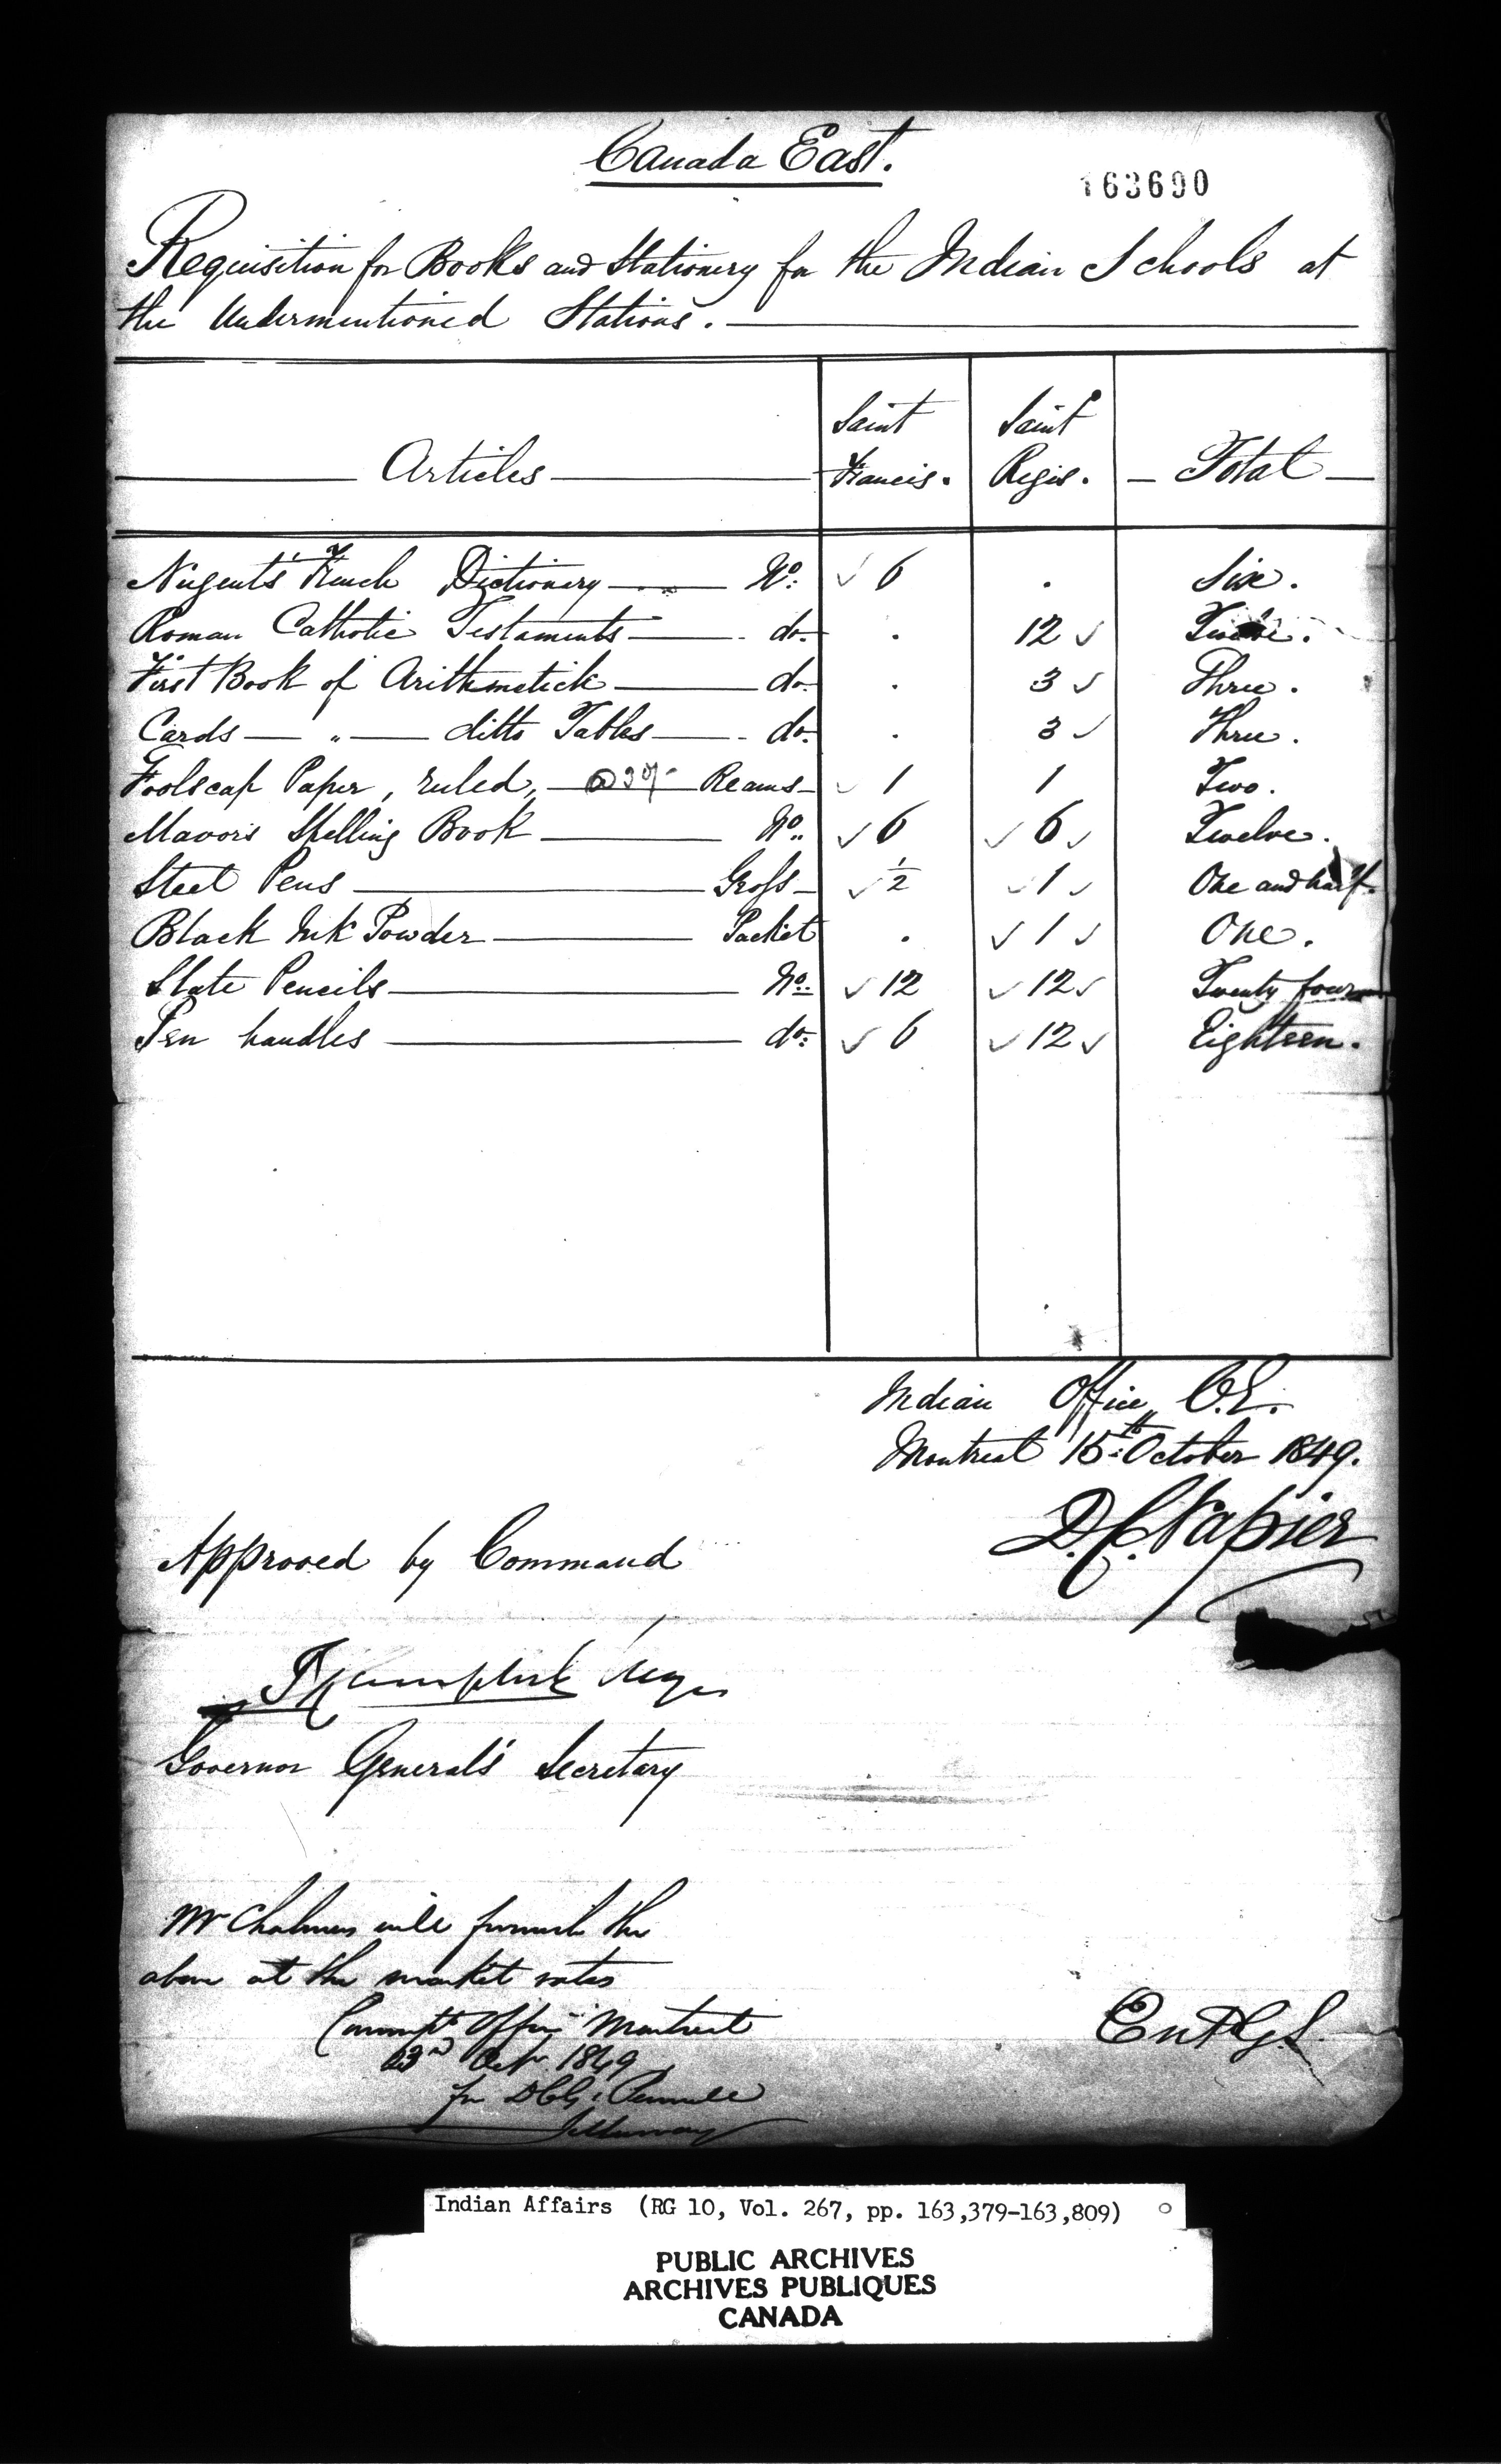 Canada East.
163690
Requisition for Books and Stationery for the Indian Schools at
the Undermentioned Stations.
Articles Saint Francis. Saint Regis. Total
Nugent's French Dictionery No. ✓ 6 . Six.
Roman Catholic Testaments do. . 12 ✓ Twelve.
First Book of Arithmetick do. . 3 ✓ Three.
Cards " ditto Tables do. . 3 ✓ Three.
Foolscap Paper, ruled, Reams ✓ 1 1 Two.
Mavor's Spelling Book No. ✓ 6 ✓ 6 ✓ Twelve.
Steel Pens Gross ✓ ½ ✓ 1 ✓ One and half.
Black Ink Powder Packet . ✓ 1 ✓ One.
Slate Pencils No. ✓ 12 ✓ 12 ✓ Twenty four
Pen handles do. ✓ 6 ✓ 12 ✓ Eighteen.
Indian Office, C.E.
Montreal 15th October 1849.
D.C. Napier
Approved by Command
Governor General's Secretary
Mr Chalmers will furnish the
above at the market rates
Commt. Office Montreal
23rd Octr. 1849
for DCG:
Indian Affairs (RG 10, Vol. 267, pp. 163,379-163,809)
PUBLIC ARCHIVES
ARCHIVES PUBLIQUES
CANADA